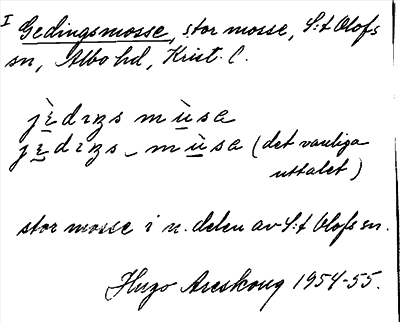 I Gedingsmosse, stor mosse, S:t Olofs
sn, Albo hd, Krist. l.
jèdɪŋs mùsa
jèdɪŋs - mùsa (det vanliga
uttalet)
stor mosse i n. delen av S:t Olofs sn.
Hugo Areskoug 1954-55.